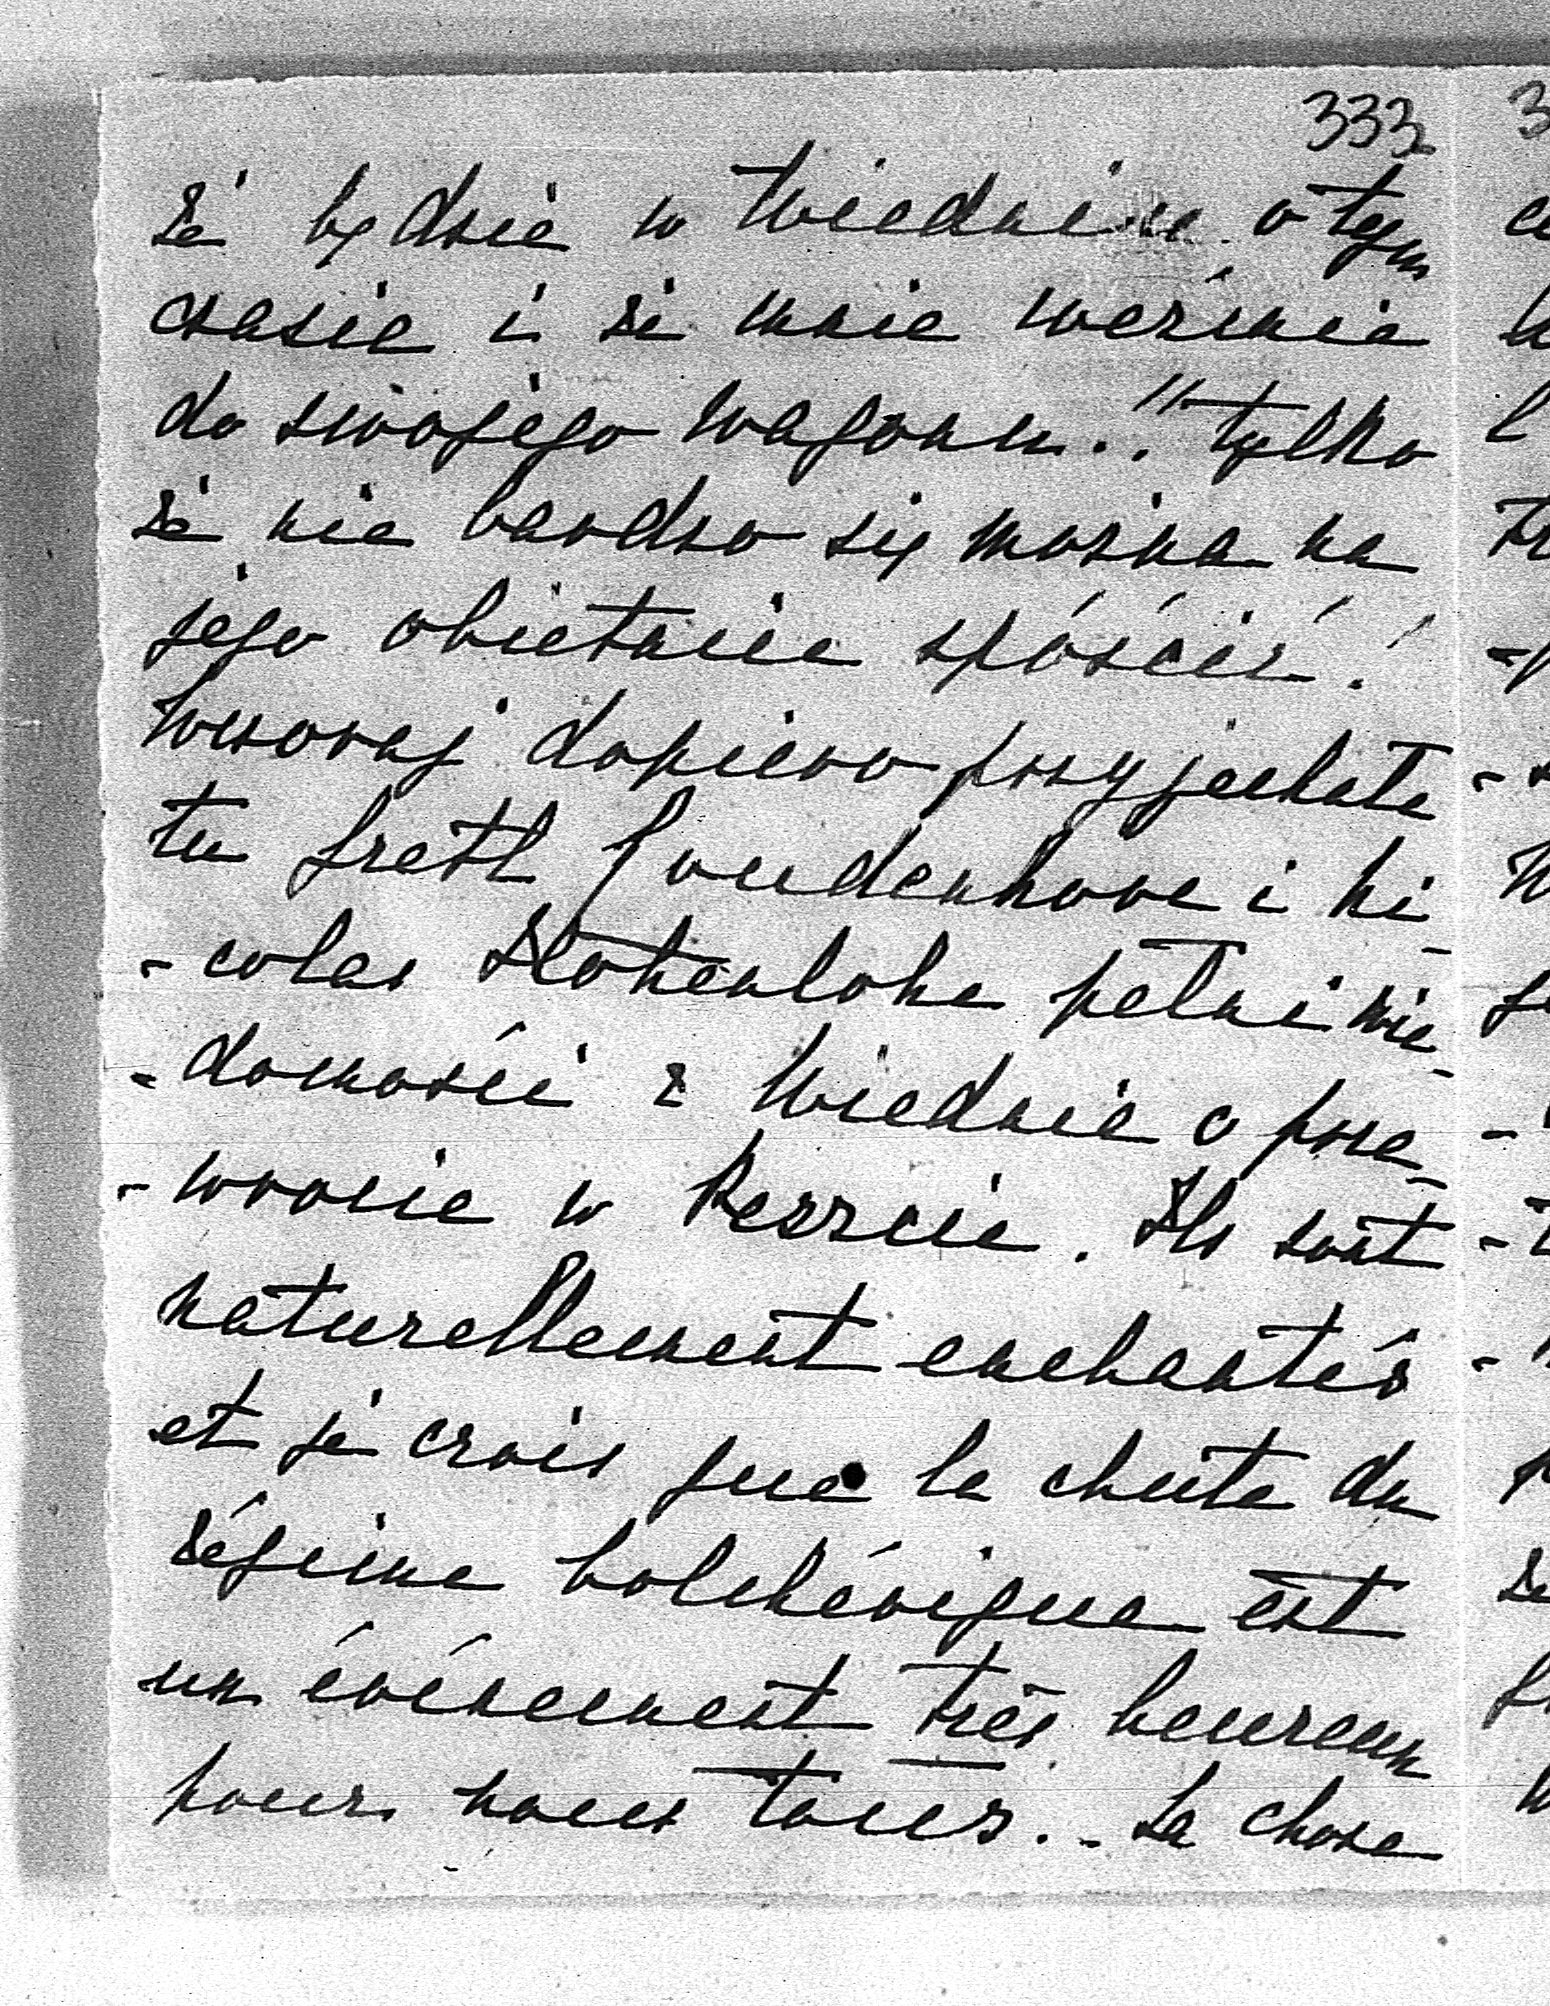 333
że będzie w Wiedniu o tym
czasie i że mnie weźmie
do swojego wagonu." tylko
że nie bardzo się można na
jego obietnice spóścić!
Wczoraj dopiero przyjechała
tu Gretl Coudenhove i Ni-
-colas Hohenlohe pełni wia-
-domości z Wiednia o prze-
-wrocie w Peszcie. Ils sont
naturellement enchantés
et je crois que la chute du
régime bolchévique est
un événement très heureux
pour nous tous. - La chose